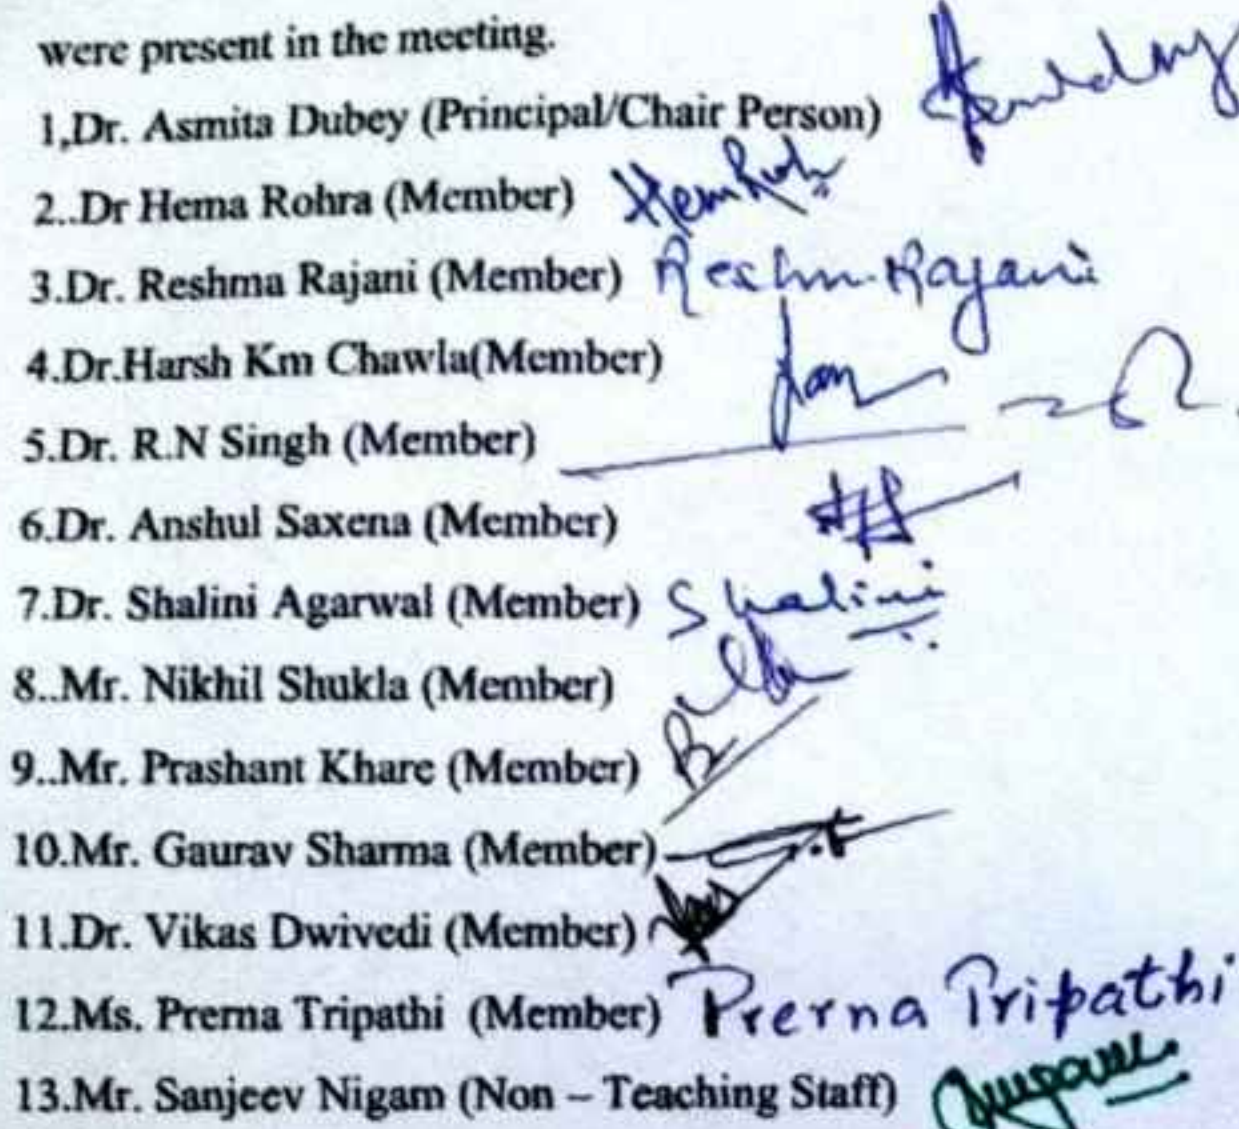 were present in the meeting.
1,Dr. Asmita Dubey (Principal/Chair Person)
2..Dr Hema Rohra (Member)
3.Dr. Reshma Rajani (Member) Reshm Rajani
4.Dr.Harsh Km Chawla(Member)
5.Dr. R.N Singh (Member)
6.Dr. Anshul Saxena (Member)
7.Dr. Shalini Agarwal (Member) Shalini
8..Mr. Nikhil Shukla (Member)
9..Mr. Prashant Khare (Member)
10.Mr. Gaurav Sharma (Member)
11.Dr. Vikas Dwivedi (Member)
12.Ms. Prerna Tripathi (Member) Prerna Tripathi
13.Mr. Sanjeev Nigam (Non – Teaching Staff)